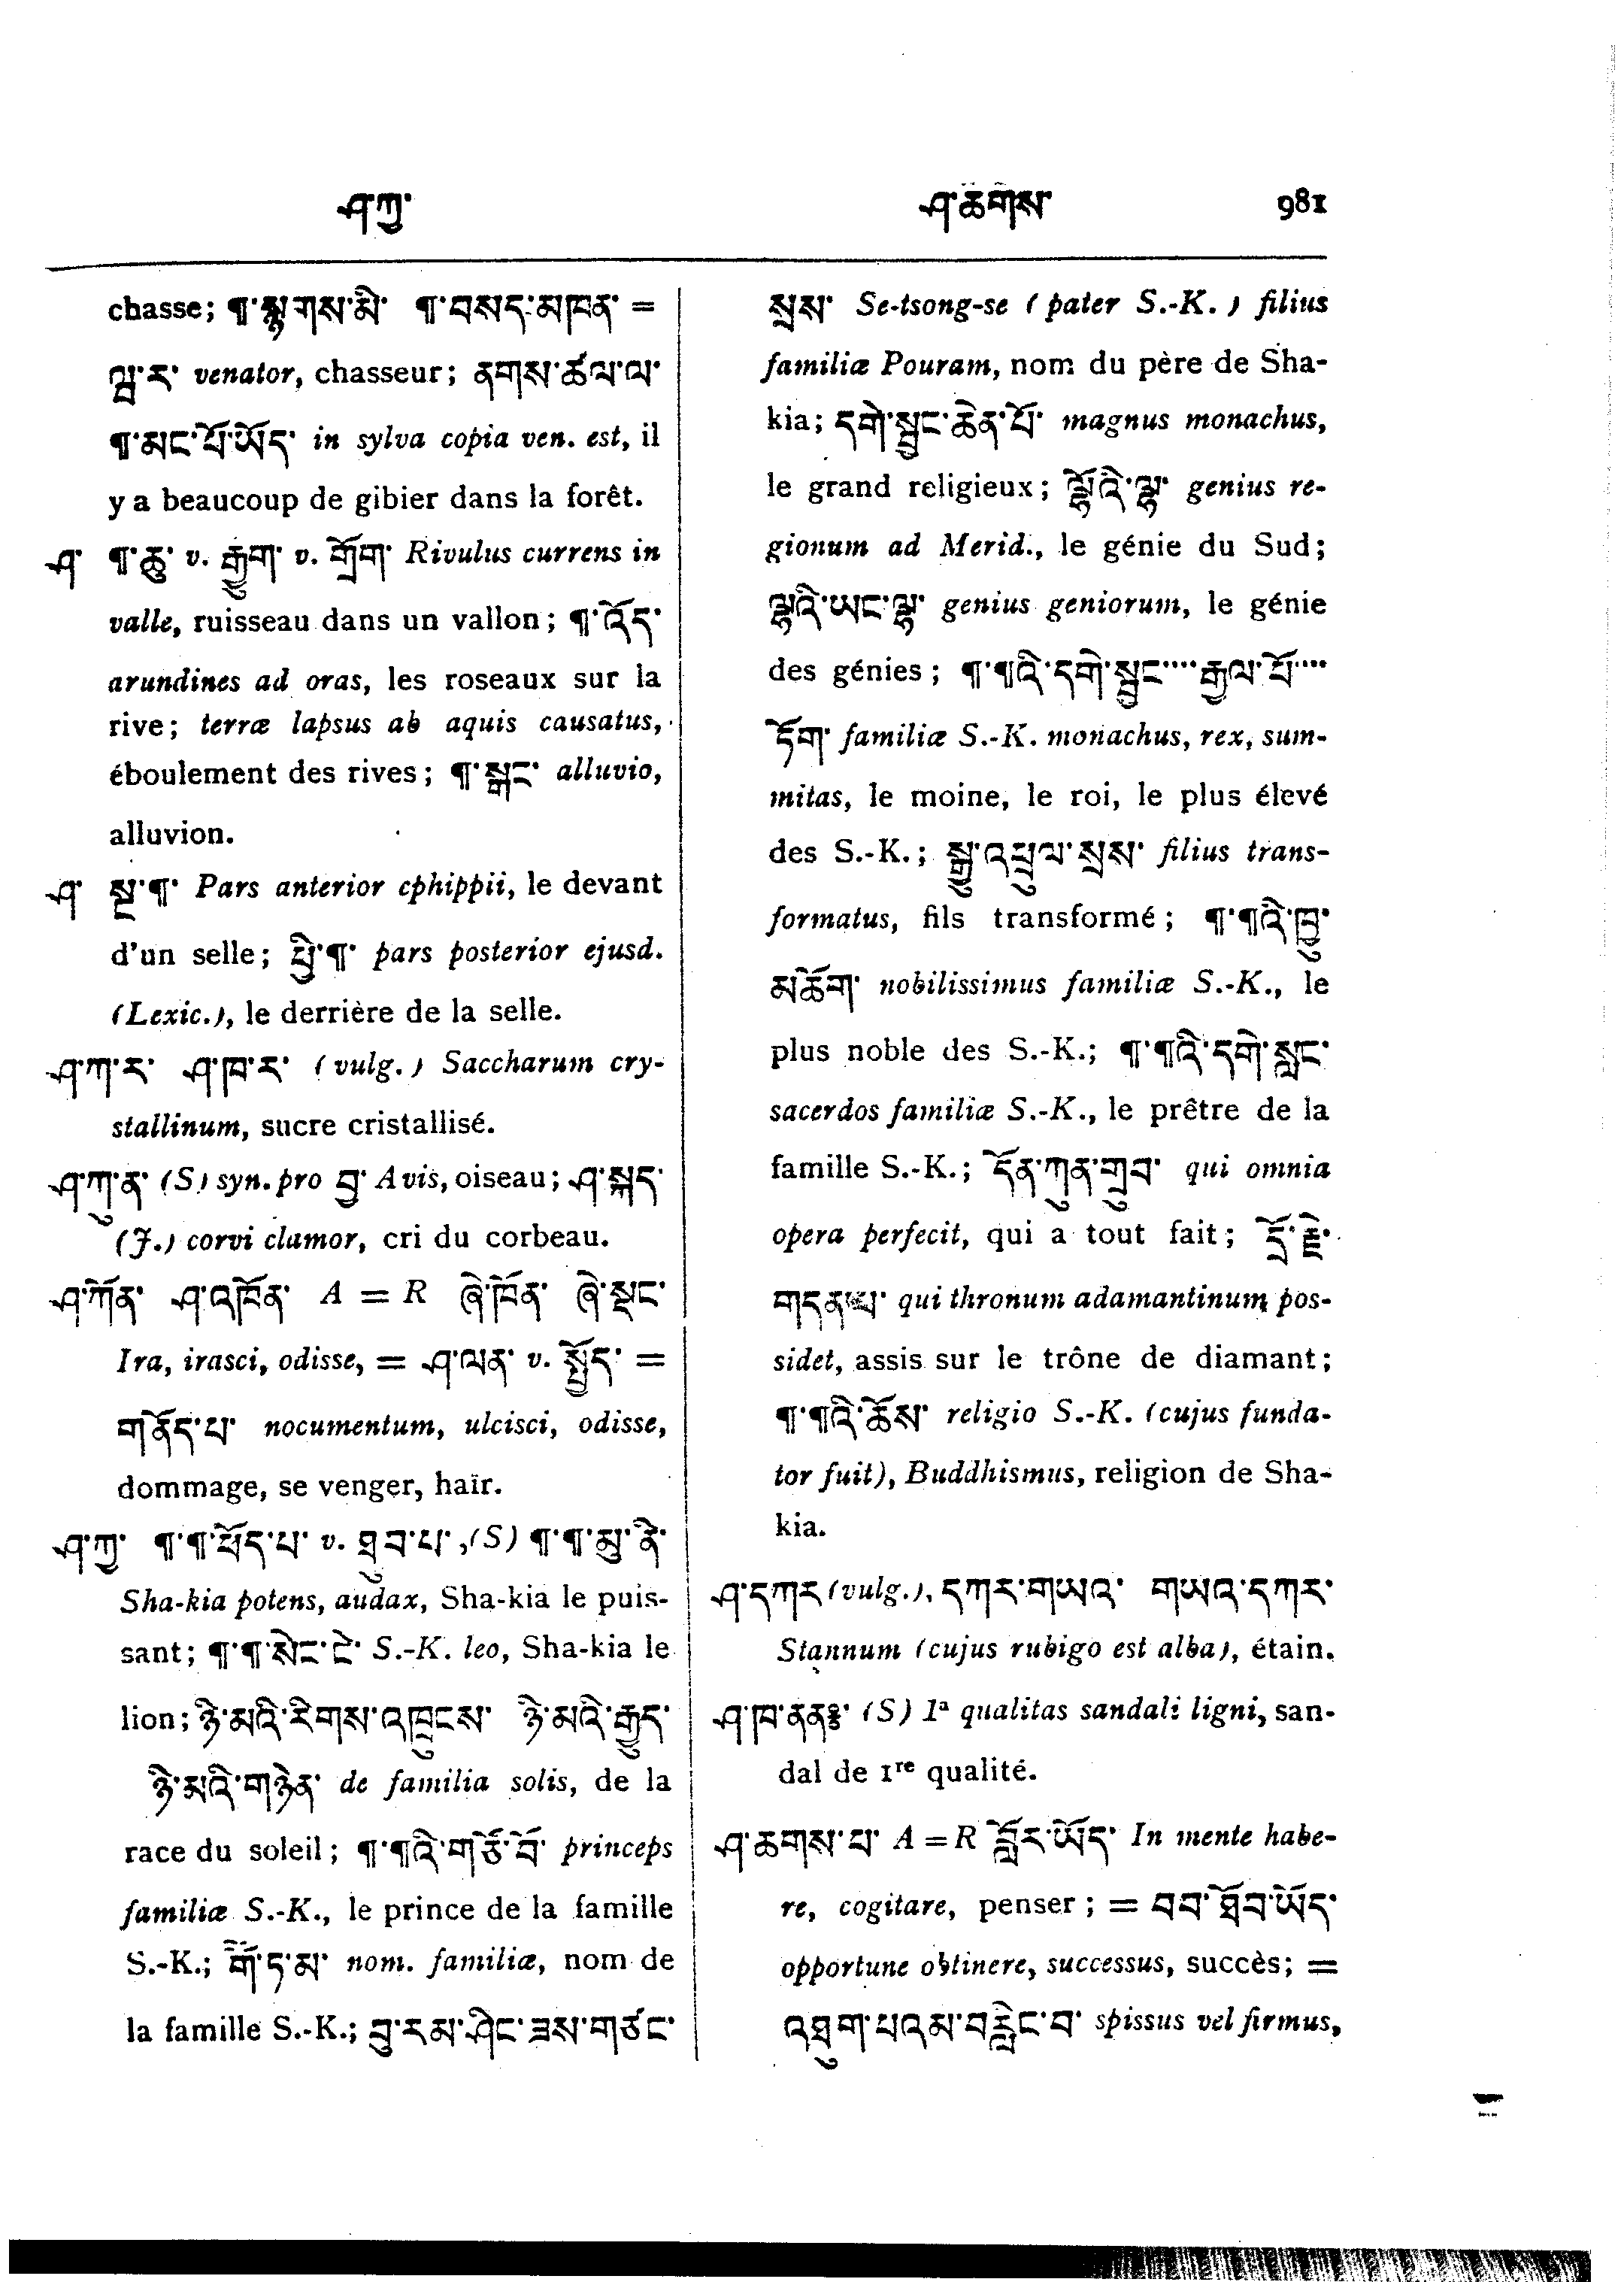 ཤ་ཀྱ་
ཤ་ཆགས་ 981
chasse; ¶་སྙགས་མི་ ¶་བསད་མཁན་ =
ལྤ་ར་ venator, chasseur; ནགས་ཚལ་ལ་
¶་མང་པོ་ཡོད་ in sylva copia ven. est, il
y a beaucoup de gibier dans la forêt.
ཤ་ ¶་ཆུ་ v. རྒྱུག་ v. གྲོག་ Rivulus currens in
valle, ruisseau dans un vallon; ¶་འོད་
arundines ad oras, les roseaux sur la
rive; terræ lapsus ab aquis causatus,
éboulement des rives; ¶་སྒང་ alluvio,
alluvion.
ཤ་ སྔ་¶་ Pars anterior cphippii, le devant
d'un selle; ཕྱི་¶་ pars posterior ejusd.
(Lexic.), le derrière de la selle.
ཤ་ཀ་ར་ ཤ་ཁ་ར་ (vulg.) Saccharum cry-
stallinum, sucre cristallisé.
ཤ་ཀུ་ན་ (S) syn. pro བྱ་ Avis, oiseau; ཤ་སྐད་
(J.) corvi clamor, cri du corbeau.
ཤ་ཀོན་ ཤ་འཁོན་ A = R ཞེ་ཁོན་ ཞེ་སྡང་
Ira, irasci, odisse, = ཤ་ལན་ v. སྤྱོད་ =
གནོད་པ་ nocumentum, ulcisci, odisse,
dommage, se venger, haïr.
ཤ་ཀྱ་ ¶་¶་ཕོད་པ་ v. ཐུབ་པ་, (S) ¶་¶་མུ་ནེ་
Sha-kia potens, audax, Sha-kia le puis-
sant; ¶་¶་སེང་ངེ་ S.-K. leo, Sha-kia le
lion; ཉེ་མའི་རིགས་འཁྲུངས་ ཉེ་མའི་རྒྱུད་
ཉེ་མའི་གཉེན་ de familia solis, de la
race du soleil; ¶་¶འི་གཙོ་བོ་ princeps
familiæ S.-K., le prince de la famille
S.-K.; གོཽ་ད་མ་ nom. familiæ, nom de
la famille S.-K.; བུ་རམ་ཤིང་ཟས་གཙང་
སྲས་ Se-tsong-se (pater S.-K.) filius
familiæ Pouram, nom du père de Sha-
kia; དགེ་སྦྱང་ཆེན་པོ་ magnus monachus,
le grand religieux; ལྷོའི་ལྷ་ genius re-
gionum ad Merid., le génie du Sud;
ལྷའི་ཡང་ལྷ་ genius geniorum, le génie
des génies; ¶་¶འི་དགེ་སྦྱང་.... རྒྱལ་པོ་....
ཏོག་ familiæ S.-K. monachus, rex, sum-
mitas, le moine, le roi, le plus élevé
des S.-K.; སྒྱུ་འཕྲུལ་སྲས་ filius trans-
formatus, fils transformé; ¶་¶འི་ཁྱུ་
མཆོག་ nobilissimus familiæ S.-K., le
plus noble des S.-K.; ¶་¶འི་དགེ་སློང་
sacerdos familiæ S.-K., le prêtre de la
famille S.-K.; དོན་ཀུན་གྲུབ་ qui omnia
opera perfecit, qui a tout fait; དོ་རྗེ་
གདན་པ་ qui thronum adamantinum pos-
sidet, assis sur le trône de diamant;
¶་¶འི་ཆོས་ religio S.-K. (cujus funda-
tor fuit), Buddhismus, religion de Sha-
kia.
ཤ་དཀར (vulg.), དཀར་གཡའ་ གཡའ་དཀར་
Stannum (cujus rubigo est alba), étain.
ཤ་ཁ་ནན (S) 1ª qualitas sandali ligni, san-
dal de 1re qualité.
ཤ་ཆགས་པ་ A = R བློར་ཡོད་ In mente habe-
re, cogitare, penser; = བབ་ཐོབ་ཡོད་
opportune obtinere, successus, succès; =
འཐུག་པའམ་བརླིང་བ་ spissus vel firmus,